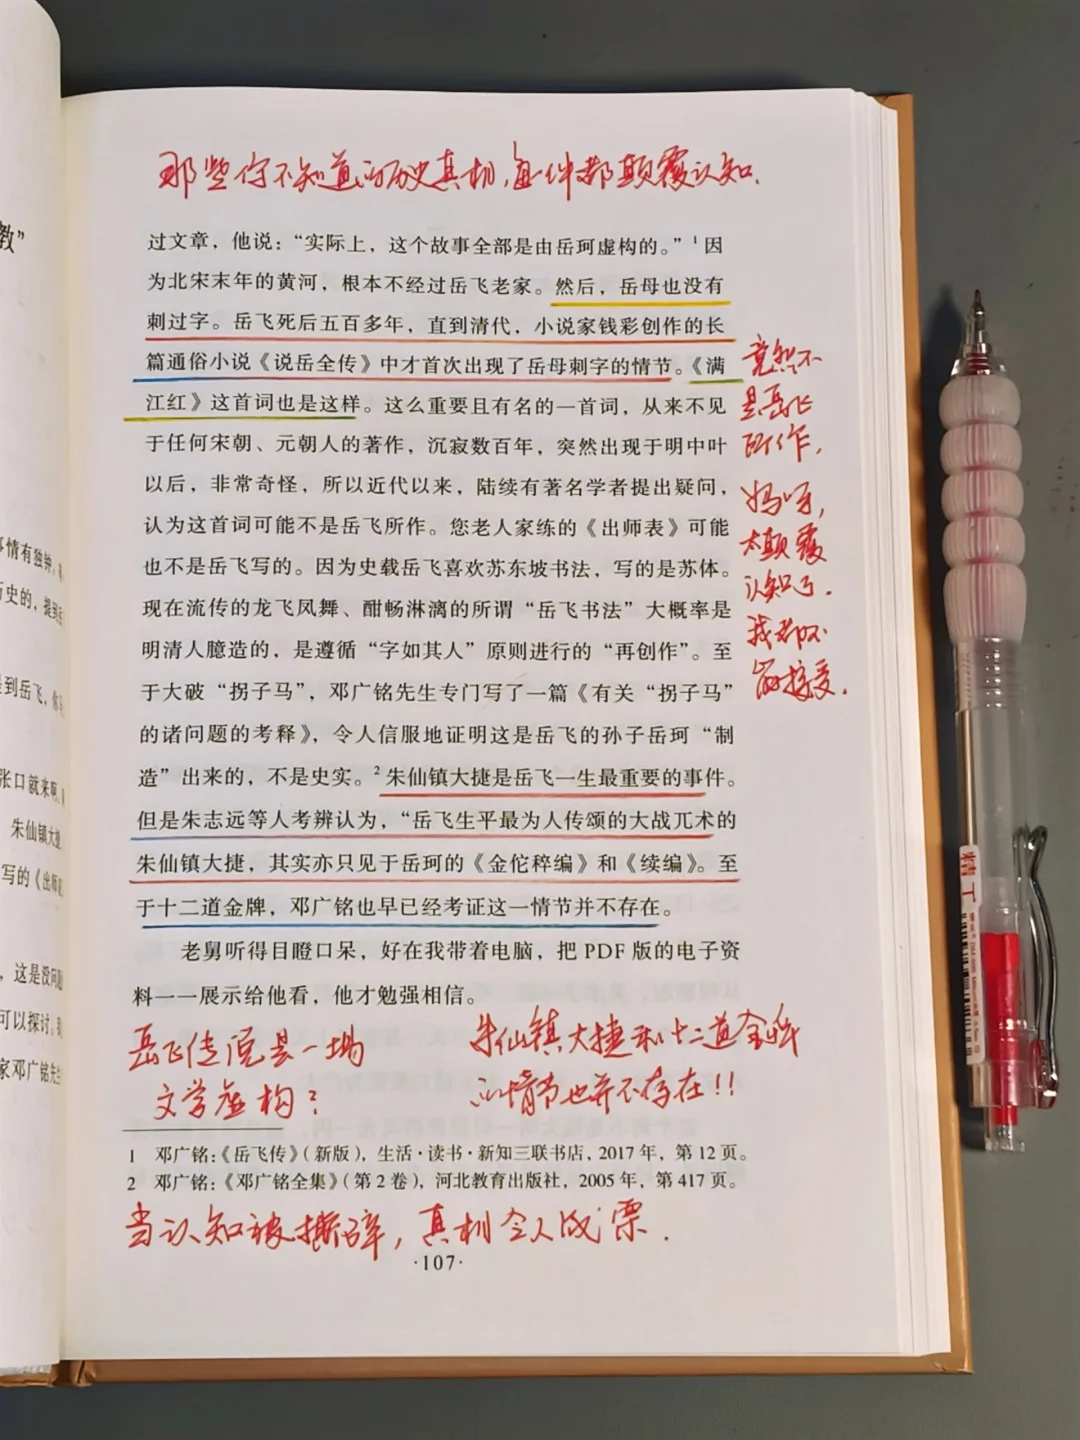 那些你不知道的历史真相，每件都颠覆认知.
过文章，他说：“实际上，这个故事全部是由岳珂虚构的。”1因
为北宋末年的黄河，根本不经过岳飞老家。然后，岳母也没有
刺过字。岳飞死后五百多年，直到清代，小说家钱彩创作的长
篇通俗小说《说岳全传》中才首次出现了岳母刺字的情节。《满
江红》这首词也是这样。这么重要且有名的一首词，从来不见
于任何宋朝、元朝人的著作，沉寂数百年，突然出现于明中叶
以后，非常奇怪，所以近代以来，陆续有著名学者提出疑问，
认为这首词可能不是岳飞所作。您老人家练的《出师表》可能
也不是岳飞写的。因为史载岳飞喜欢苏东坡书法，写的是苏体。
现在流传的龙飞凤舞、酣畅淋漓的所谓“岳飞书法”大概率是
明清人臆造的，是遵循“字如其人”原则进行的“再创作”。至
于大破“拐子马”，邓广铭先生专门写了一篇《有关“拐子马”
的诸问题的考释》，令人信服地证明这是岳飞的孙子岳珂“制
造”出来的，不是史实。2朱仙镇大捷是岳飞一生最重要的事件。
但是朱志远等人考辨认为，“岳飞生平最为人传颂的大战兀术的
朱仙镇大捷，其实亦只见于岳珂的《金佗稡编》和《续编》。至
于十二道金牌，邓广铭也早已经考证这一情节并不存在。
老舅听得目瞪口呆，好在我带着电脑，把 PDF 版的电子资
料一一展示给他看，他才勉强相信。
竟然不
是岳飞
所作，
妈呀，
太颠覆
认知了.
我都不
敢接受.
岳飞传说是一场
文学虚构？
朱仙镇大捷和十二道金牌
的情节也并不存在!!
1 邓广铭：《岳飞传》（新版），生活·读书·新知三联书店，2017 年，第 12 页。
2 邓广铭：《邓广铭全集》（第 2 卷），河北教育出版社，2005 年，第 417 页。
当认知被撕碎，真相令人战栗.
·107·
教”
事情有独钟，
历史的，提到岳
是到岳飞，
张口就来啊，
朱仙镇大捷
写的《出师
，这是没问题
可以探讨，
家邓广铭先生
精工